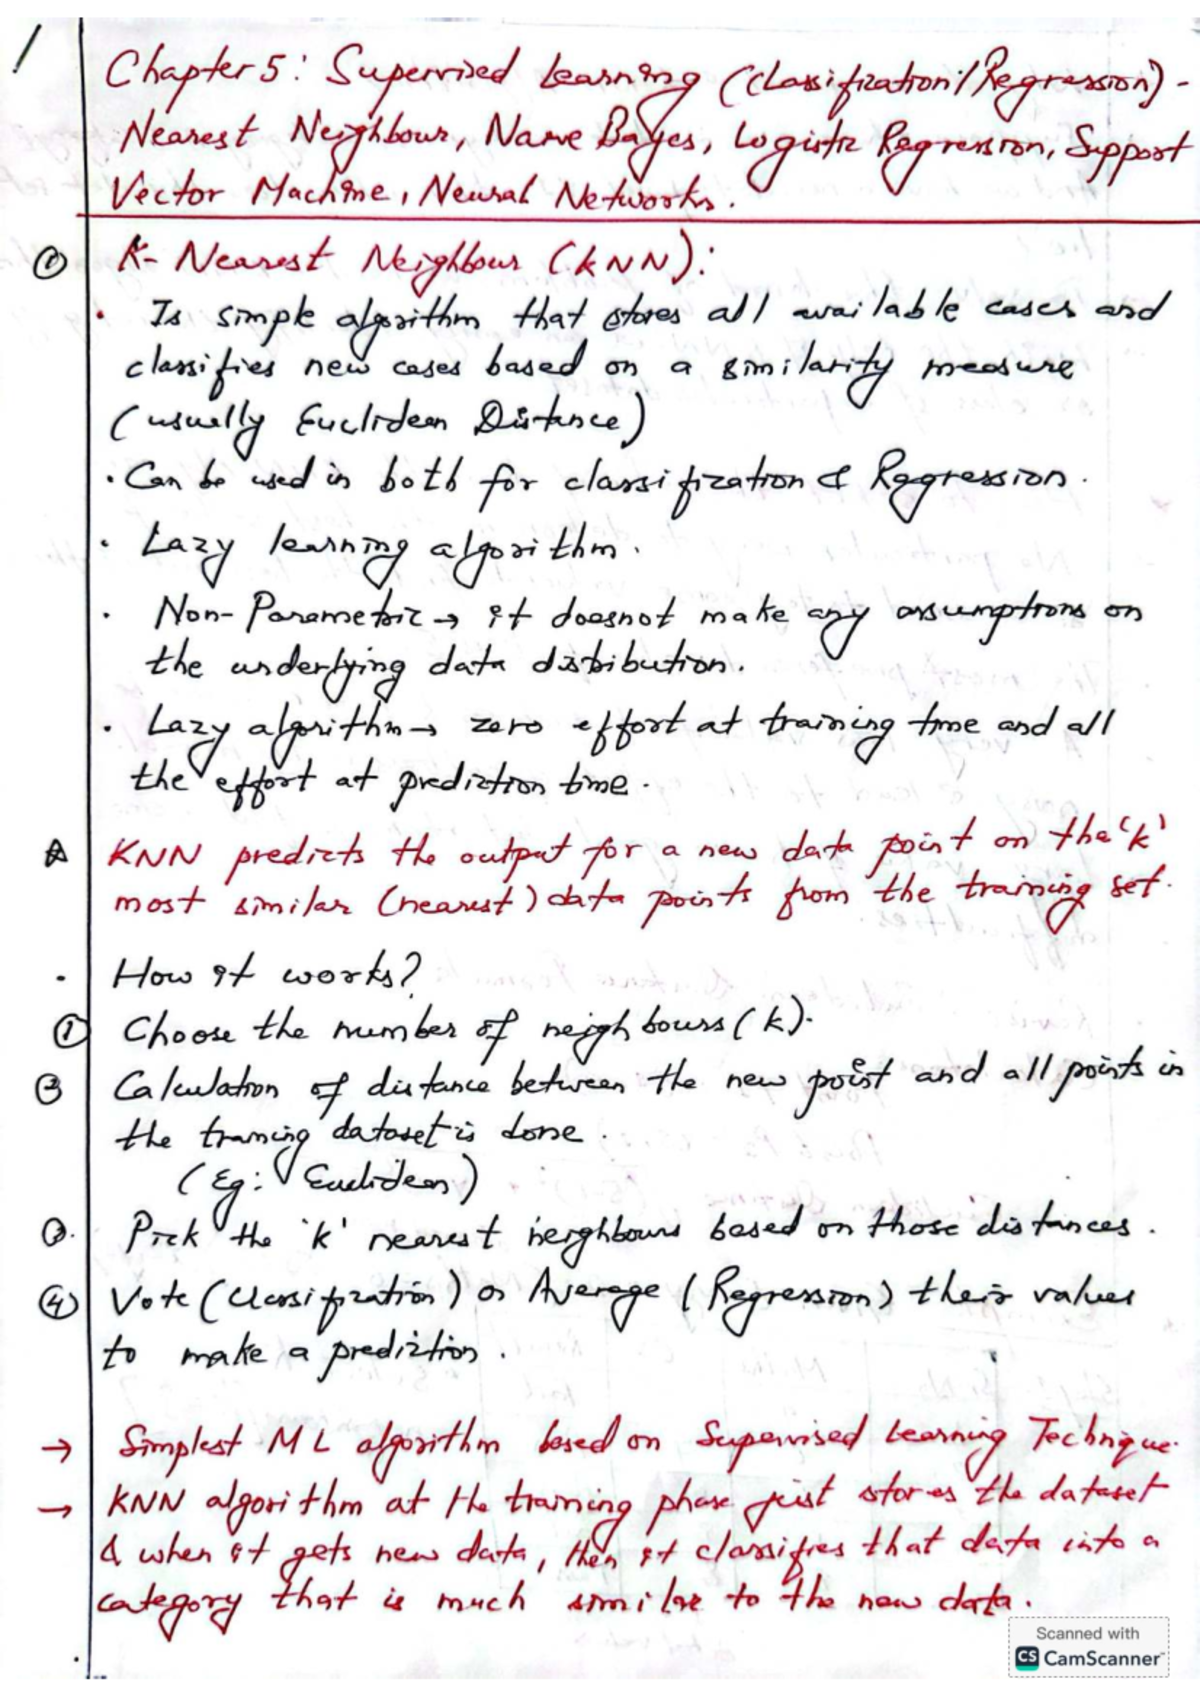 Chapter 5: Supervised Learning (Classification/Regression) -
Nearest Neighbour, Naive Bayes, Logistic Regression, Support
Vector Machine, Neural Networks.
① K- Nearest Neighbour (KNN):
• Is simple algorithm that stores all available cases and
classifies new cases based on a similarity measure
(usually Euclidean Distance)
• Can be used in both for classification & Regression.
• Lazy learning algorithm.
• Non-Parametric → it doesnot make any assumptions on
the underlying data distribution.
• Lazy algorithm → zero effort at training time and all
the effort at prediction time.
☆ KNN predicts the output for a new data point on the 'k'
most similar (nearest) data points from the training set.
• How it works?
① Choose the number of neighbours (k).
② Calculation of distance between the new point and all points in
the training dataset is done.
(Eg: Euclidean)
③. Pick the 'k' nearest neighbours based on those distances.
④ Vote (Classification) or Average (Regression) their values
to make a prediction.
→ Simplest ML algorithm based on Supervised Learning Technique.
→ KNN algorithm at the training phase just stores the dataset
& when it gets new data, then it classifies that data into a
category that is much similar to the new data.
Scanned with
CS CamScanner